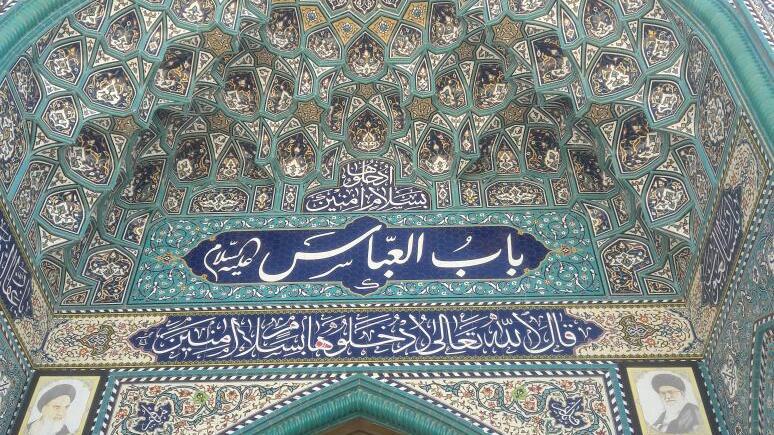 ادخلوا
بسلام آمنین
باب العباس علیه السلام
قال الله تعالی ادخلوها بسلام آمنین